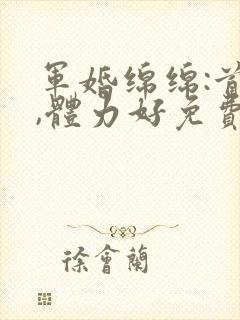 軍婚綿綿:首
,體力好免費
徐會蘭